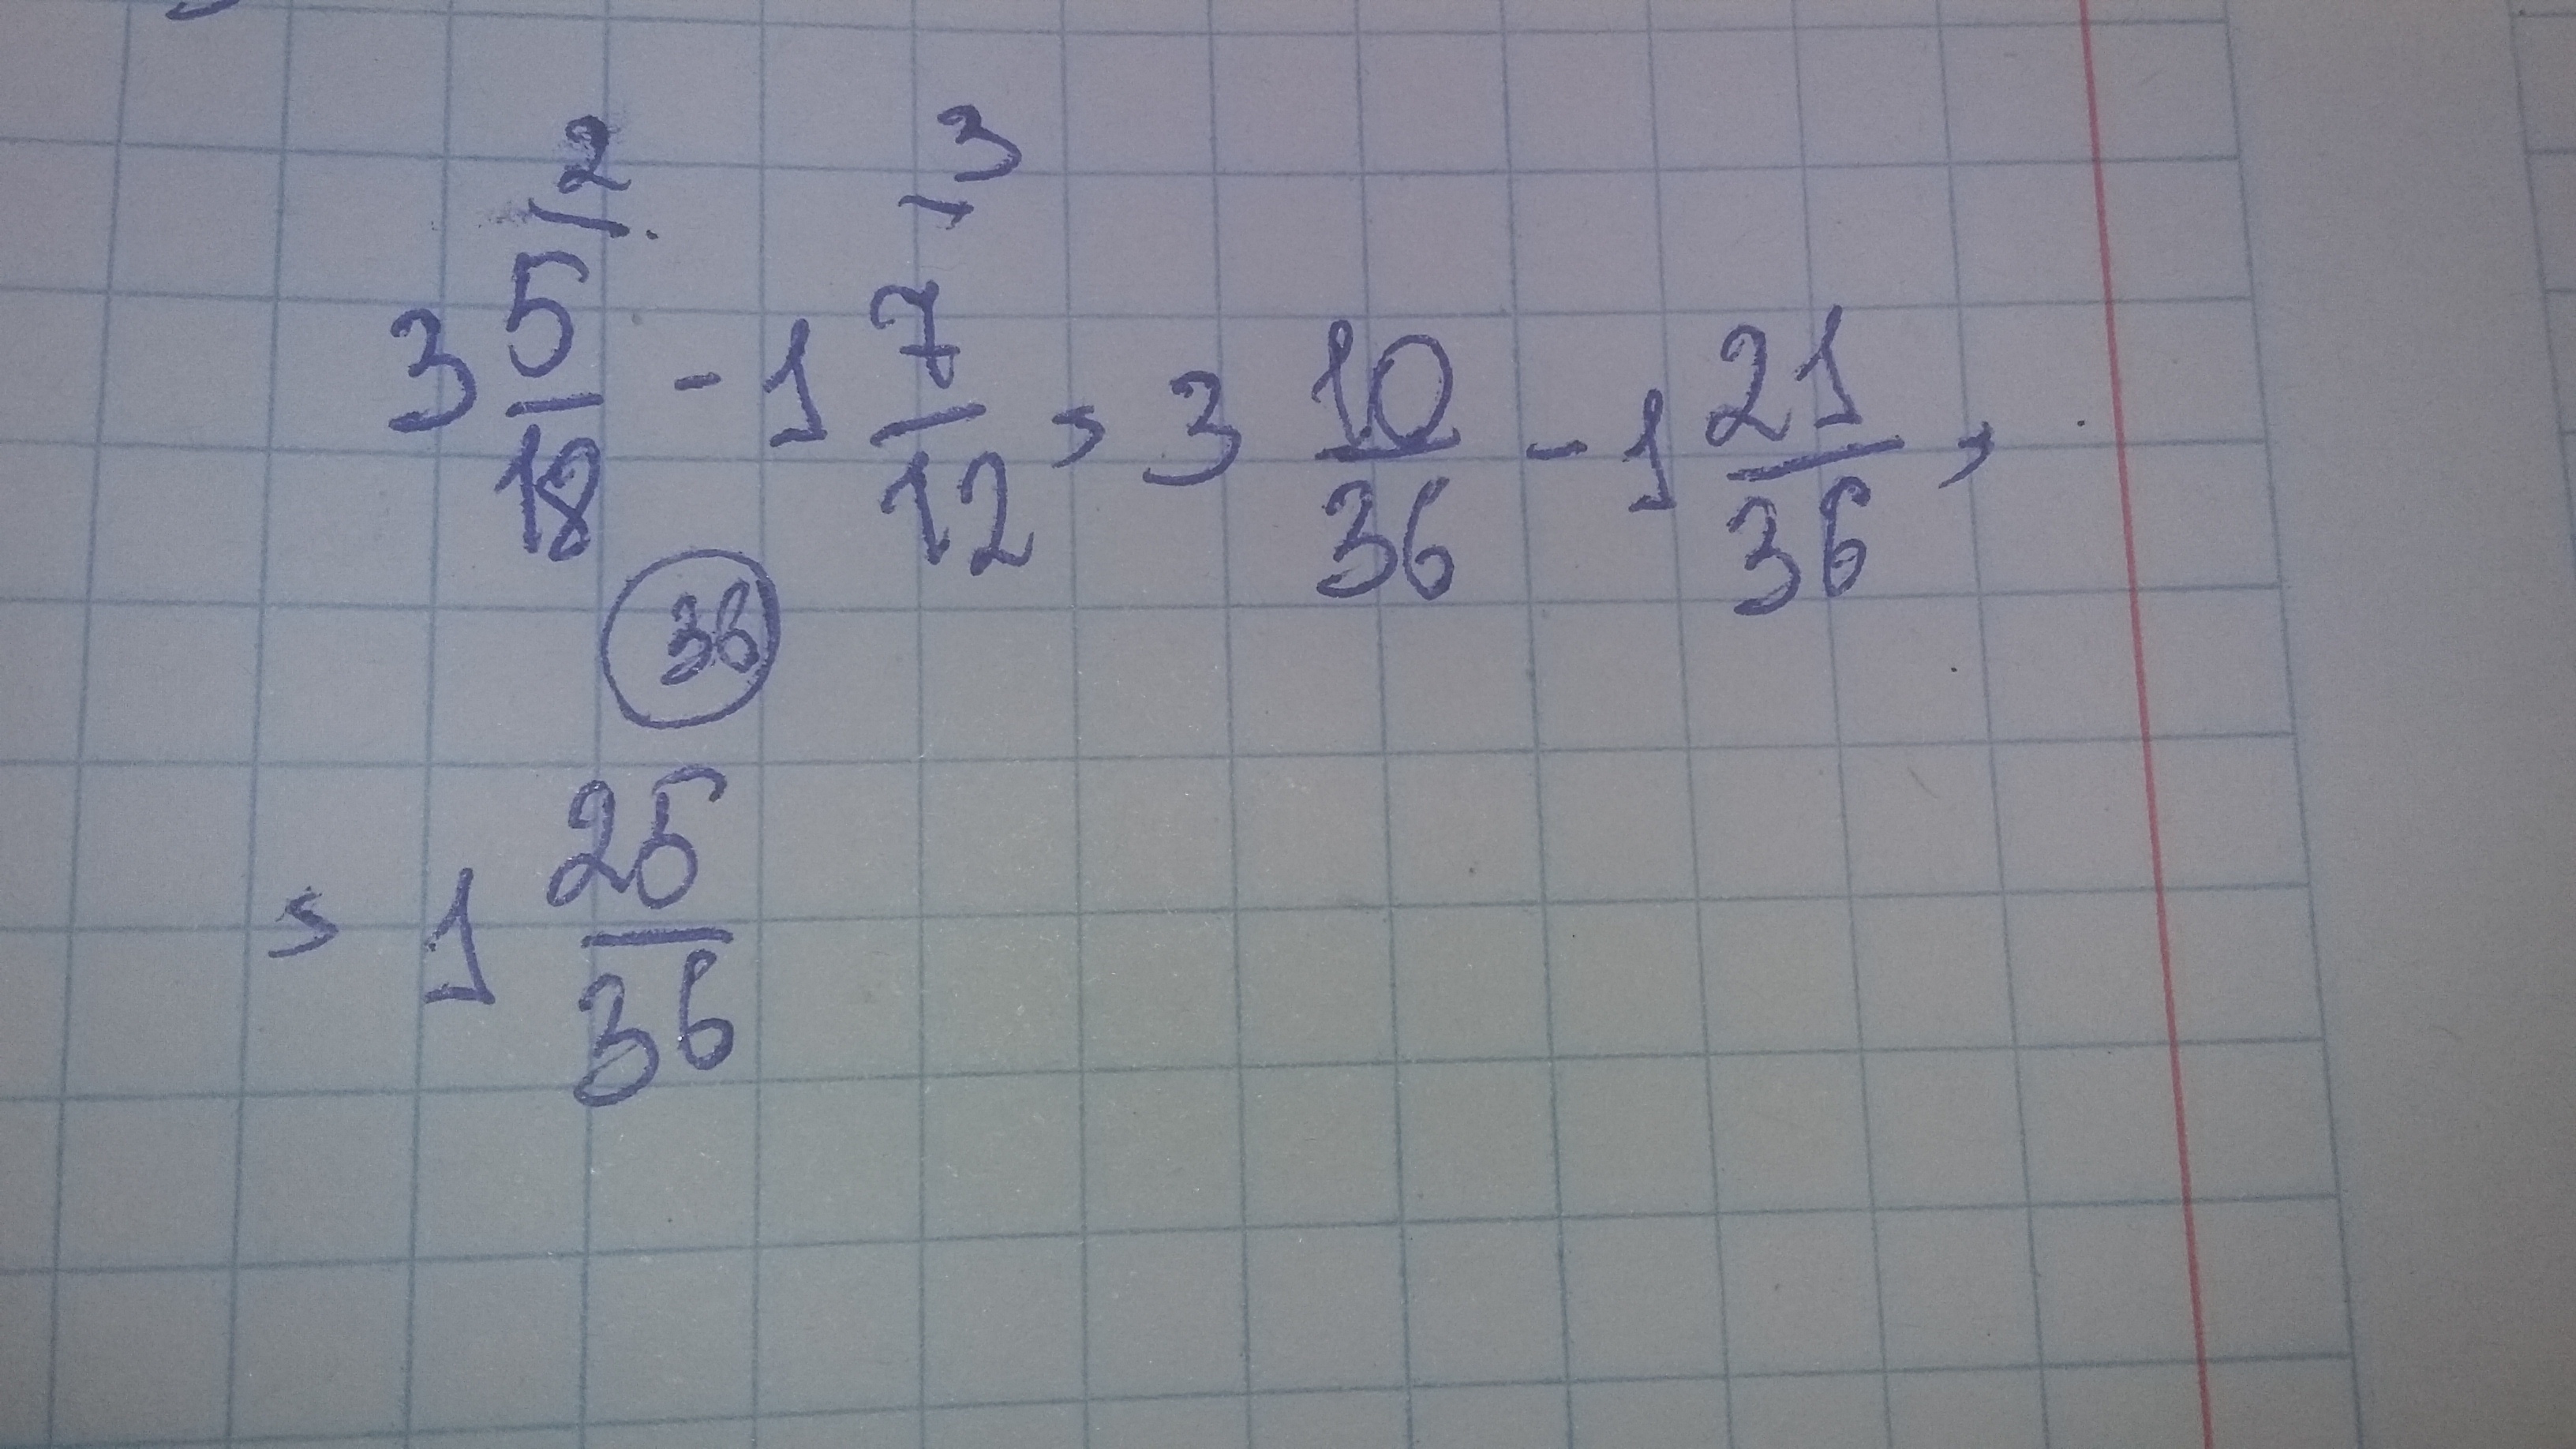 2 3
3 5/18 - 1 7/12 = 3 10/36 - 1 21/36 =
36
= 1 25/36